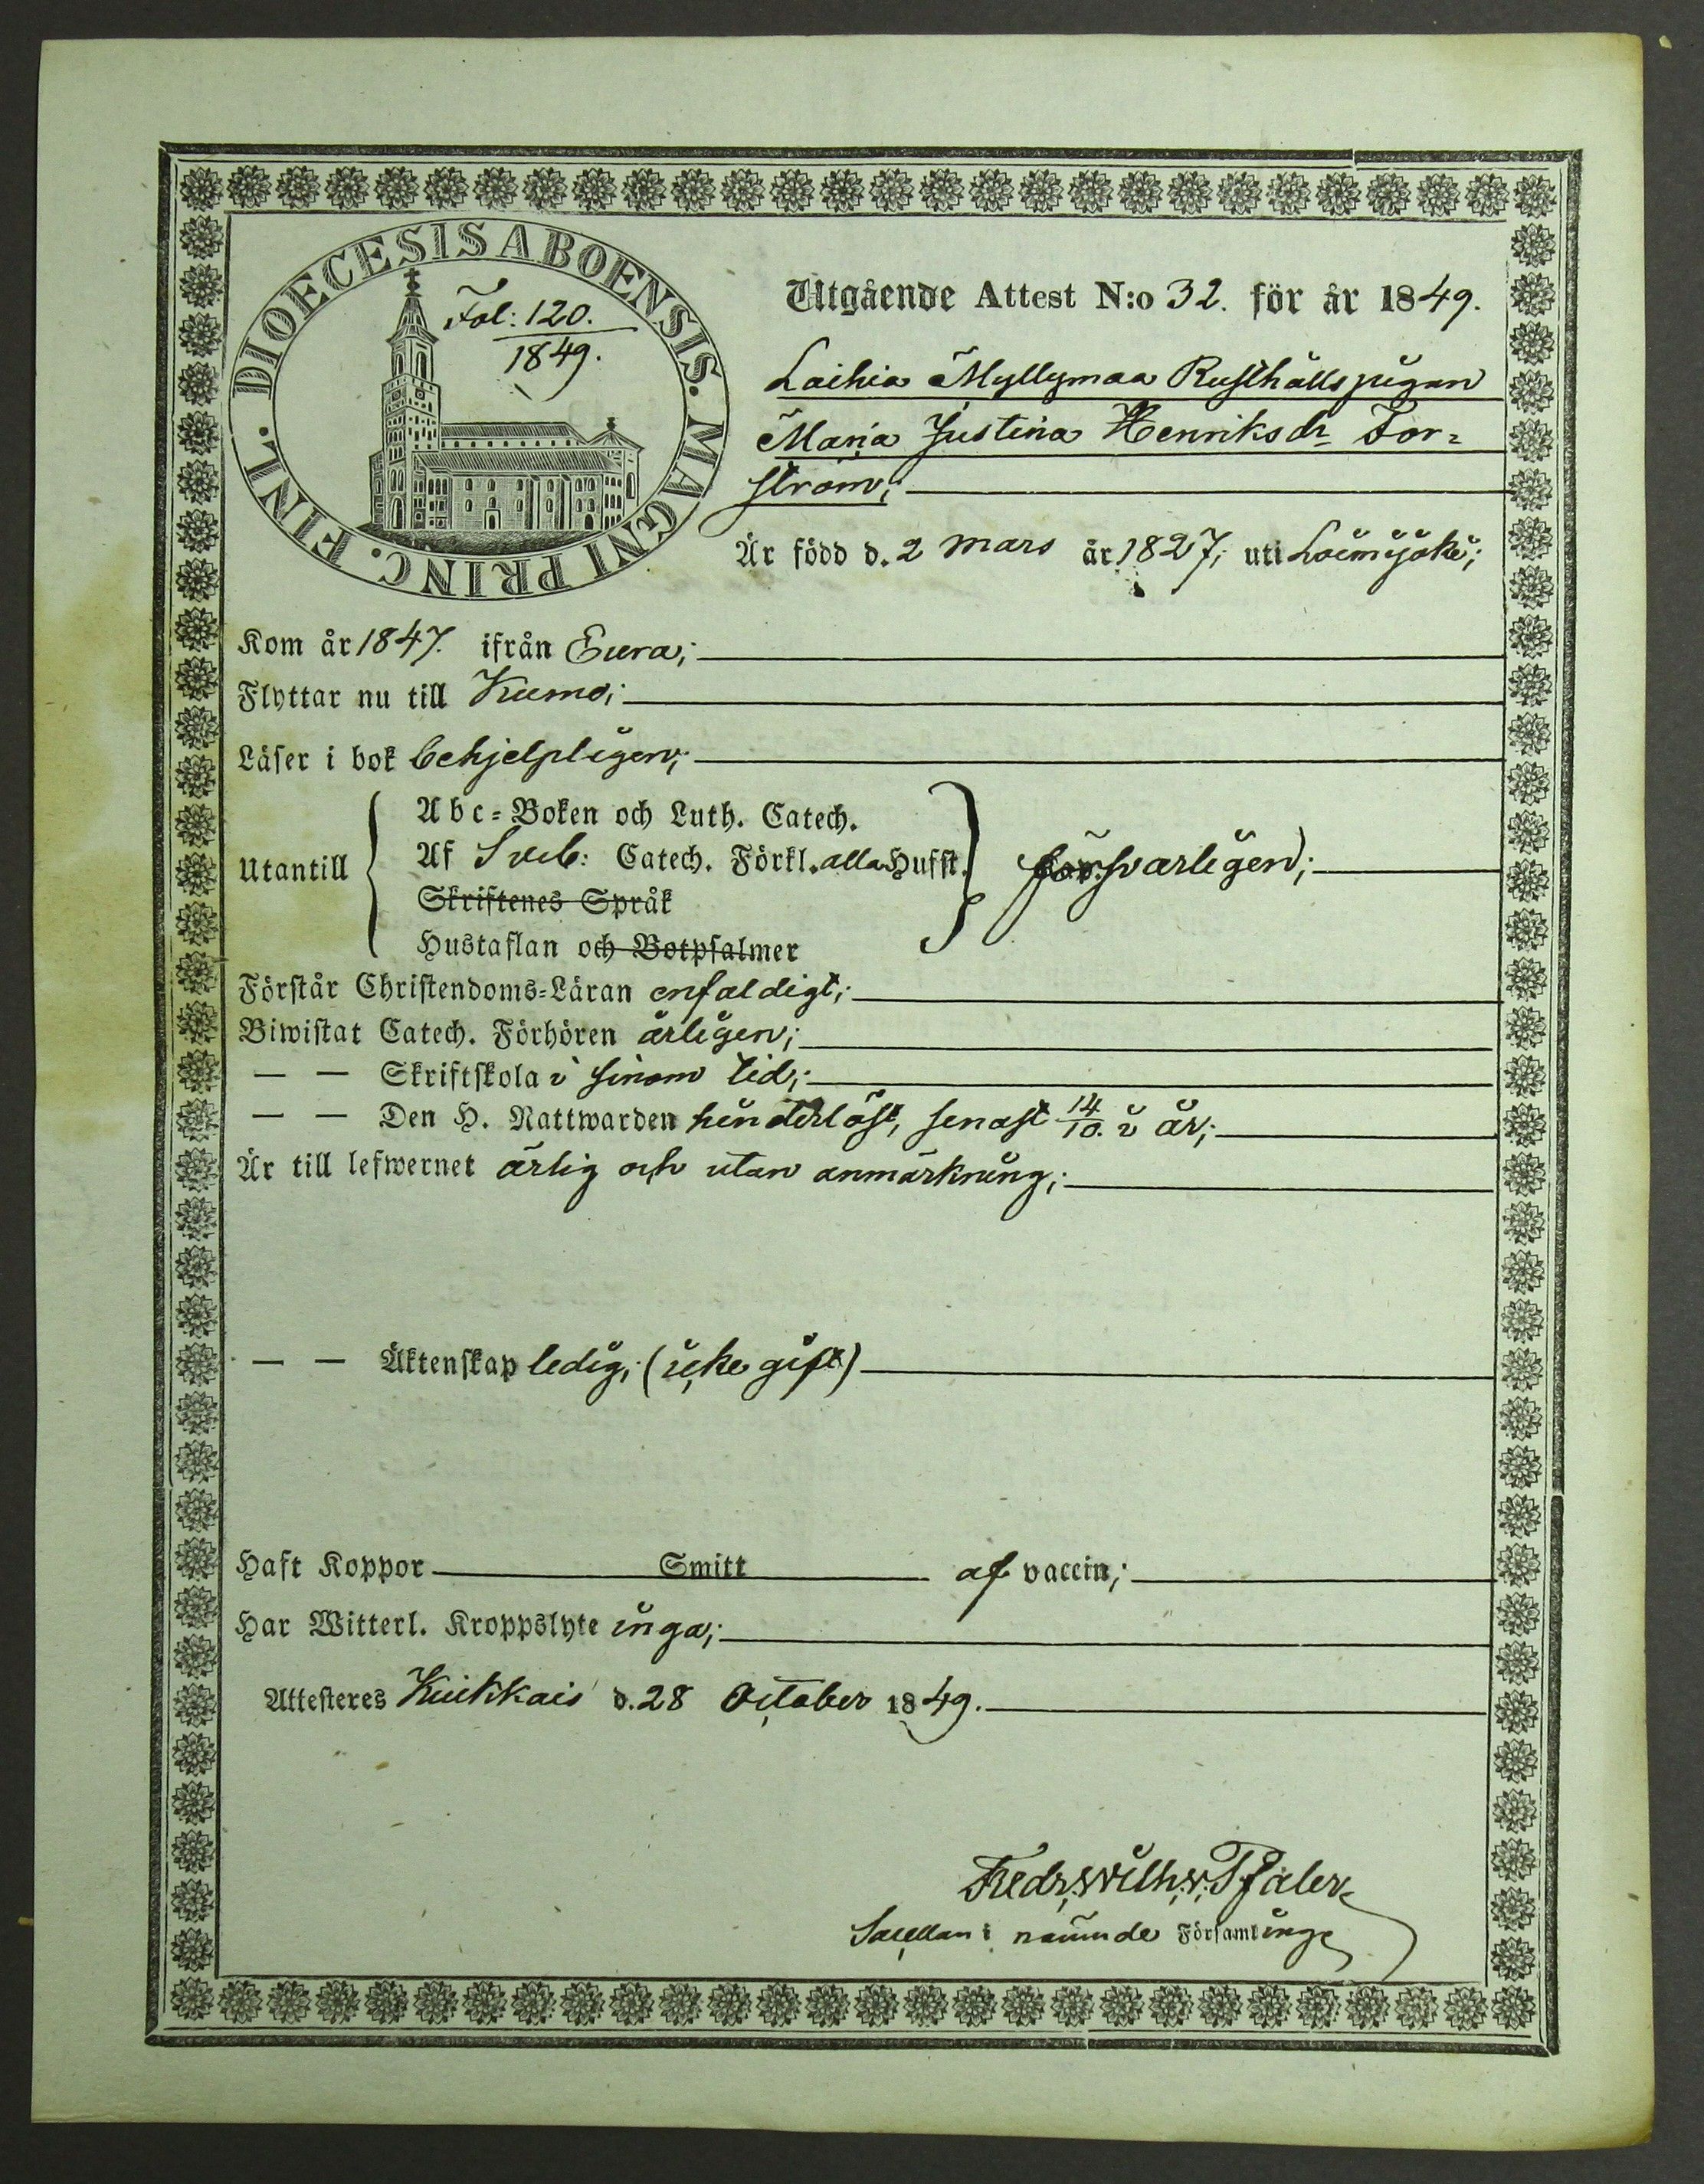 DIOECESIS ABOENSIS. MAGNI PRINC. FINL.
Fol: 120.
1849.
Utgående Attest N:o 32. för år 1849.
Laihia Myllymaa Rusthålls pigan
Maria Justina Henriksdr For=
ström;
Är född d. 2 Mars år 1827; uti Loimijoki;
Kom år 1847. ifrån Eura;
Flyttar nu till Kumo;
Läser i bok behjelpligen;
Abc=Boken och Luth. Catech.
Utantill Af Sveb: Catech. Förkl. alla Hufst. försvarligen;
Skriftenes Språk
Hustaflan och Botpsalmer
Förstår Christendoms=Läran enfaldigt;
Biwistat Catech. Förhören årligen;
— — Skriftskola i sinom tid;
— — Den H. Nattwarden hinderlöst, senast 14/10. i år;
Är till lefwernet ärlig och utan anmärkning;
— — Äktenskap ledig; (icke gift)
Haft Koppor Smitt af vaccin;
Har Witterl. Kroppslyte inga;
Attesteres Kiukkais d. 28 October 1849.
Fredr. Wilh. v. Pfaler
Sacellan i nämnde Församling